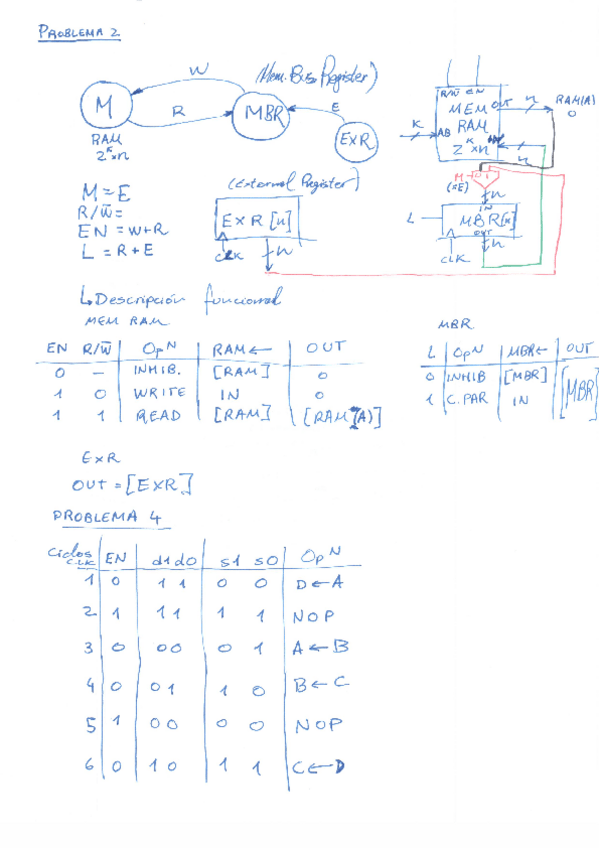 PROBLEMA 2
W
(Mem. Bus Register)
M
R
MBR
E
ExR
RAM
2^K×n
R/W̅ EN
MEM OUT
n
RAM(A)
0
K
AB RAM
2^K×n
n
M
(=E)
0 1
n
L
IN
MBR[n]
OUT
CLK
n
(External Register)
ExR[n]
CLK
n
M = E
R/W̅ =
EN = W+R
L = R + E
↳ Descripción funcional
MEM RAM
EN R/W̅ OpN RAM← OUT
0 – INHIB. [RAM] 0
1 0 WRITE IN 0
1 1 READ [RAM] [RAM(A)]
MBR
L OpN MBR← OUT
0 INHIB [MBR] [MBR]
1 C.PAR IN
ExR
OUT = [ExR]
PROBLEMA 4
Ciclos CLK EN d1 d0 s1 s0 OpN
1 0 1 1 0 0 D ← A
2 1 1 1 1 1 NOP
3 0 0 0 0 1 A ← B
4 0 0 1 1 0 B ← C
5 1 0 0 0 0 NOP
6 0 1 0 1 1 C ← D